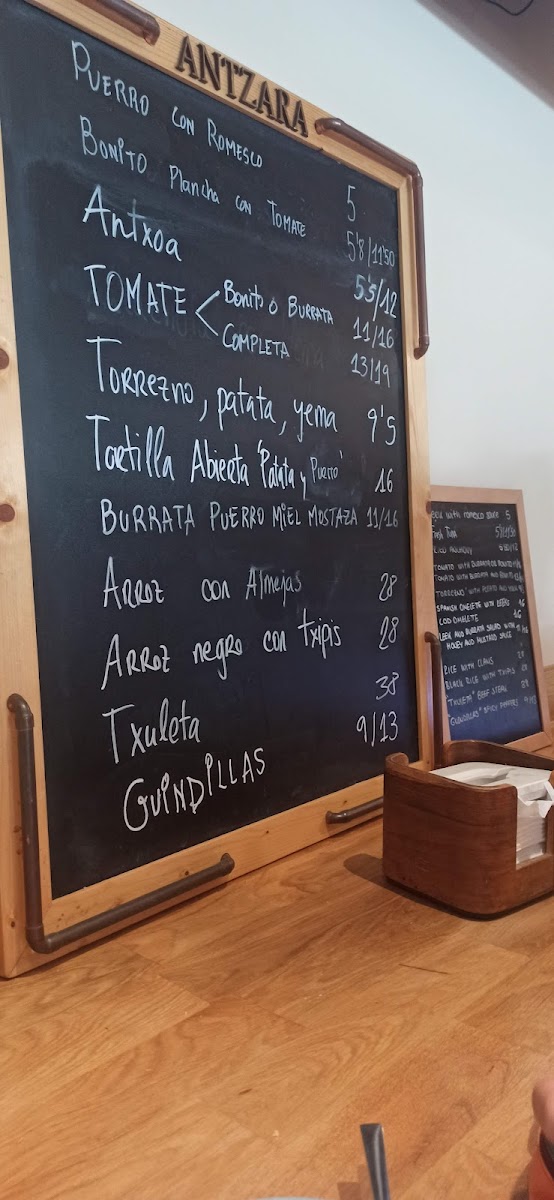 ANTZARA
PUERRO CON ROMESCO 5
BONITO Plancha con TOMATE 5'8/11'50
Antxoa 5'5/12
TOMATE < Bonito o BURRATA 11/16
COMPLETA 13/19
TORREZNO, patata, yema 9'5
Tortilla Abierta "Patata y Puerro" 16
BURRATA PUERRO MIEL MOSTAZA 11/16
ARROZ con Almejas 28
ARROZ negro con txipis 28
Txuleta 38
GUINDILLAS 9/13
with romesco sauce 5
TOMATO WITH BURRATA OR BONITO
TOMATO WITH BURRATA AND BONITO
"TORREZNO" WITH POTATO AND YEMA
SPANISH OMELETTE WITH LEEKS 16
COD OMELETE 16
LEEK AND BURRATA SALAD WITH
HONEY AND MUSTARD SAUCE
RICE WITH CLAMS 28
BLACK RICE WITH TXIPIS 28
"TXULETA" BEEF STEAK 38
"GUINDILLAS" SPICY PEPPERS 9/13